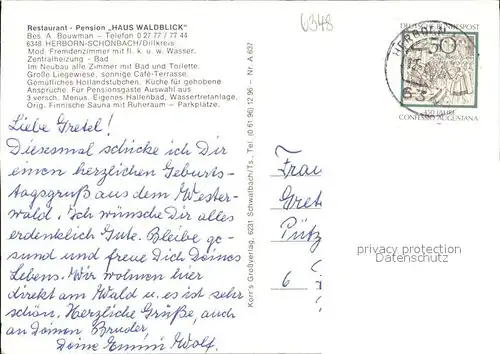 Restaurant - Pension „HAUS WALDBLICK"
Bes. A. Bouwman – Telefon 0 27 77 / 77 44
6348 HERBORN-SCHÖNBACH/Dillkreis
Mod. Fremdenzimmer mit fl. k. u. w. Wasser.
Zentralheizung - Bad
Im Neubau alle Zimmer mit Bad und Toilette.
Große Liegewiese, sonnige Café-Terrasse.
Gemütliches Hollandstübchen. Küche für gehobene
Ansprüche. Für Pensionsgäste Auswahl aus
3 versch. Menus. Eigenes Hallenbad, Wassertretanlage,
Orig. Finnische Sauna mit Ruheraum – Parkplätze.
Liebe Gretel!
Diesesmal schicke ich Dir
einen herzlichen Geburts-
tagsgruß aus dem Wester-
wald. Ich wünsche Dir alles
erdenklich Gute. Bleibe ge-
sund und freue Dich Deines
Lebens. Wir wohnen hier
direkt am Wald u. es ist sehr
schön. Herzliche Grüße, auch
an Deinen Bruder,
Deine Emmi Wolf.
Korr's Großverlag, 6231 Schwalbach/Ts., Tel. (0 61 96) 12 96 – Nr. A 637
6348
DEUTSCHE BUNDESPOST
50
450 JAHRE
CONFESSIO AUGUSTANA
HERBORN
Frau
Gret
Pütz
6
privacy protection
DatenSchutz